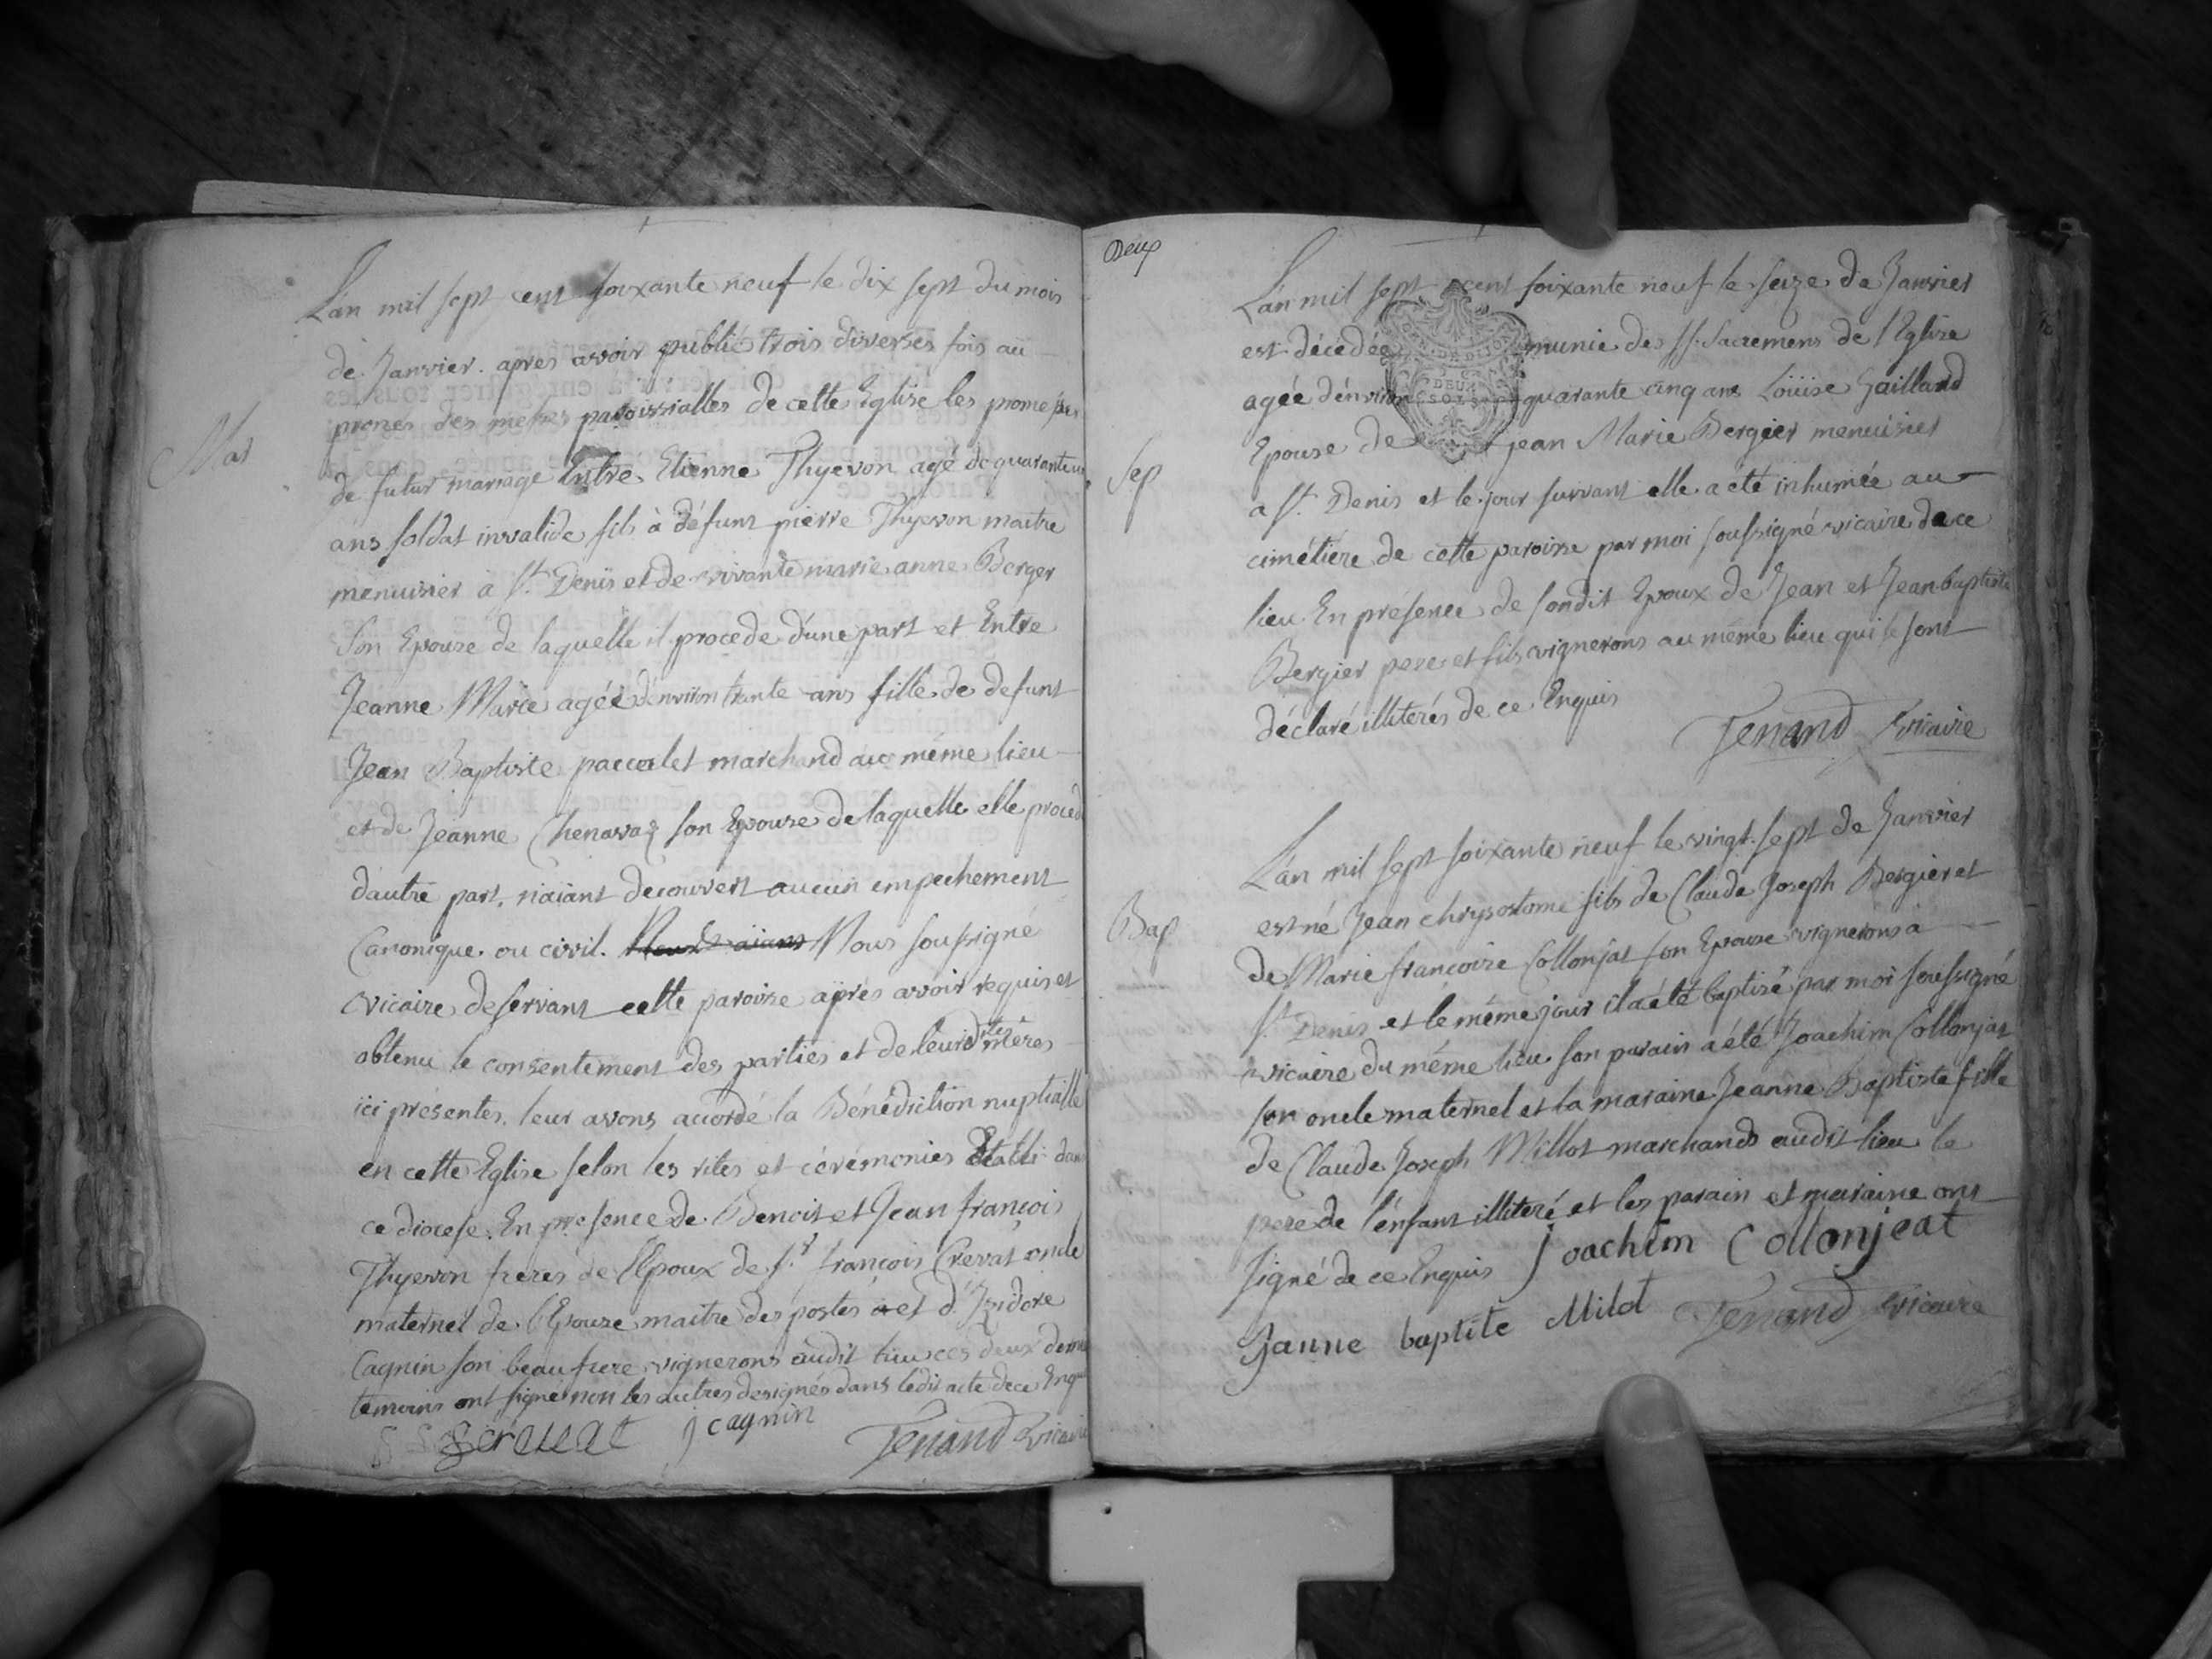 Mar
L'an mil sept cent soixante neuf le dix sept du mois
de Janvier. apres avoir publié trois diverses fois au
prones des messes paroissialles de cette Eglise les promesses
de futur mariage Entre Etienne Thyevon agé de quarante un
ans soldat invalide fils à défunt pierre Thyevon maitre
menuisier à St. Denis et de vivante marie anne Berger
son Epouse de laquelle il procede d'une part et Entre
Jeanne Marie agée d'environ trante ans fille de defunt
Jean Baptiste paccalet marchand au même lieu
et de Jeanne Chenavaz son Epouse de laquelle elle procede
d'autre part, n'aiant decouvert aucun empechement
Canonique ou civil. Nous soussigné
vicaire deservant cette paroisse apres avoir requis et
obtenu le consentement des parties et de leurdittes mères
ici présentes, leur avons accordé la Bénédiction nuptialle
en cette Eglise selon les rites et cérémonies Etabli dans
ce diocese. En presence de Benoit et Jean françois
Thyevon freres de l'Epoux de sr. françois Crevat oncle
maternel de l'Epouse maitre des postes et d'Isidore
Cagnin son beau frere vignerons audit lieu ces deux derniers
temoins ont signé non les autres designés dans ledit acte de ce Enquis
j cagnin
Tenand vicaire
Deux
Sep
L'an mil sept cent soixante neuf le seize de Janvier
est décédée munie des SS. Sacremens de l'Eglise
agée d'environ quarante cinq ans Loüise Gailland
Epouse de jean Marie Bergier menuisier
a St. Denis et le jour suivant elle a été inhumée au
cimétière de cette paroisse par moi soussigné vicaire de ce
lieu. En présence de sondit Epoux de Jean et Jean baptiste
Bergier pere et fils vignerons au même lieu qui se sont
déclaré illiterés de ce Enquis
Tenand vicaire
DEUX
SOLS
Bap
L'an mil sept soixante neuf le vingt sept de Janvier
est né Jean chrysostome fils de Claude Joseph Bergier et
de Marie françoise Collonjat son Epouse vignerons à
St. Denis et le même jour il a été baptisé par moi soussigné
vicaire du même lieu. son parain a été Joachim Collonjat
son oncle maternel et la maraine Jeanne Baptiste fille
de Claude Joseph Millot marchands audit lieu le
pere de l'enfant illiteré et les parain et maraine ont
signé de ce Enquis Joachim Collonjeat
Janne baptite Milot Tenand vicaire